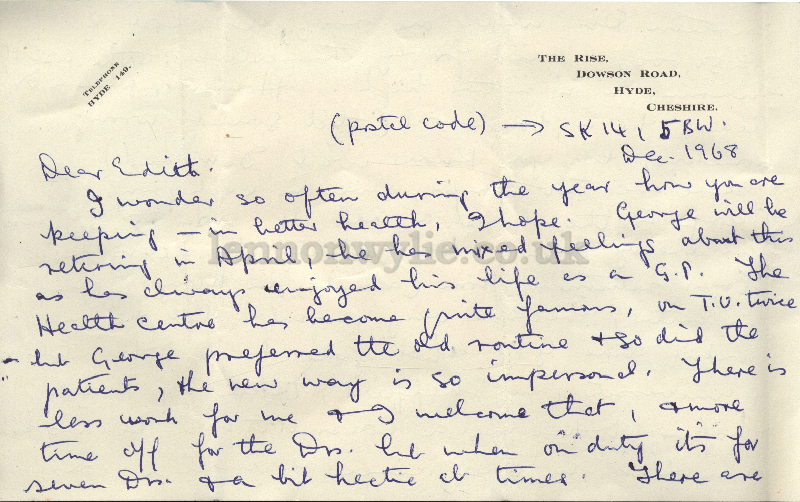 TELEPHONE
HYDE 149.
THE RISE,
DOWSON ROAD,
HYDE,
CHESHIRE.
(postal code) → SK14 1 5BW.
Dec. 1968
Dear Edith.
I wonder so often during the year how you are
keeping – in better health, I hope. George will be
retiring in April he has mixed feelings about this
as has always enjoyed his life as a G.P. The
Health Centre has become quite famous, on T.V. twice
- but George preferred the old routine & so did the
patients, the new way is so impersonal. There is
less work for me & I welcome that, & more
time off for the Drs. but when "on duty" it's for
seven Drs. & a bit hectic at times. There are
lennonwylie.co.uk